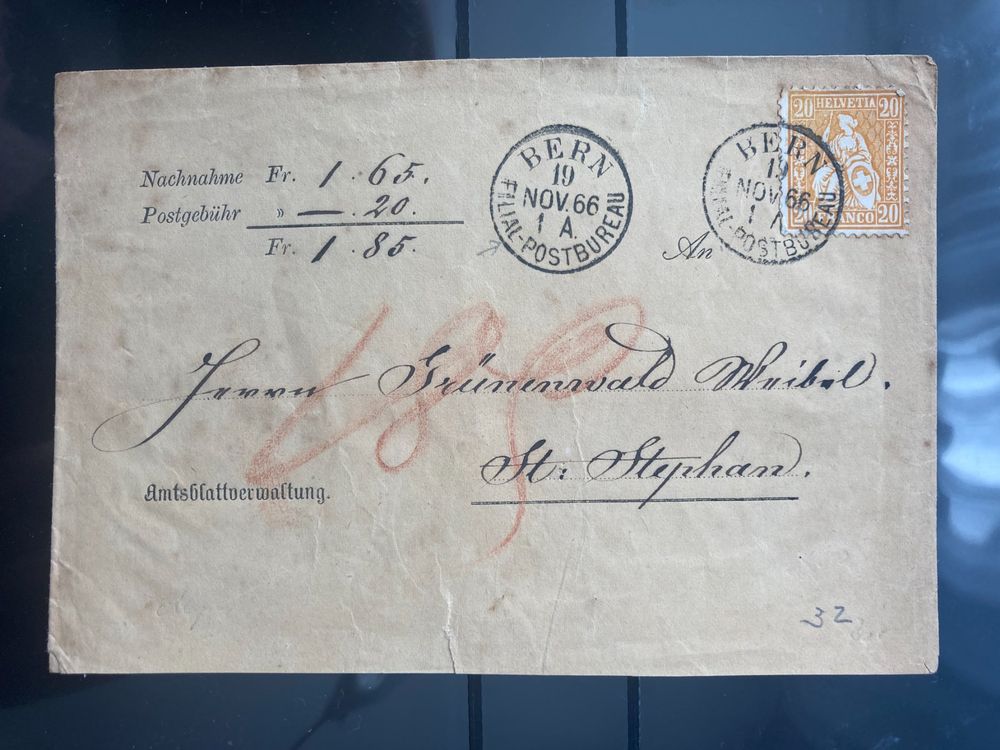 Nachnahme Fr. 1. 65.
Postgebühr » —. 20.
Fr. 1. 85.
BERN
19
NOV. 66
1 A.
FILIAL-POSTBUREAU
BERN
19
NOV. 66
1 A
FILIAL-POSTBUREAU
20 HELVETIA 20
20 FRANCO 20
An
Herrn Grünenwald Weibel.
St: Stephan.
Amtsblattverwaltung.
185
32